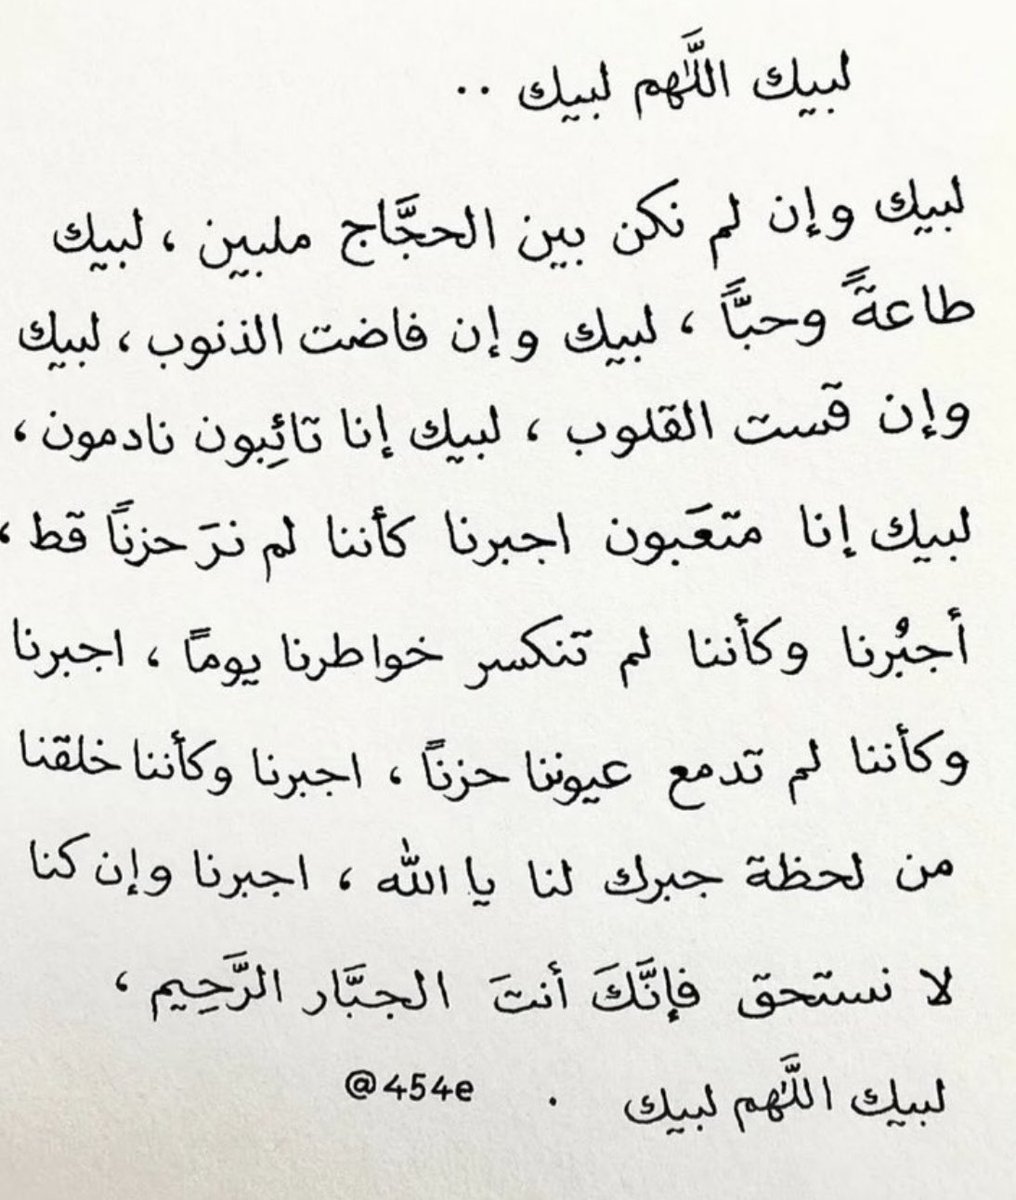 لبيك اللَّهم لبيك ..
لبيك وإن لم نكن بين الحجَّاج ملبين ، لبيك
طاعةً وحبَّاً ، لبيك وإن فاضت الذنوب ، لبيك
وإن قست القلوب ، لبيك إنا تائِبون نادمون ،
لبيك إنا متعَبون اجبرنا كأننا لم نرَ حزنًا قط ،
أجبُرنا وكأننا لم تنكسر خواطرنا يومًا ، اجبرنا
وكأننا لم تدمع عيوننا حزنًا ، اجبرنا وكأننا خلقنا
من لحظة جبرك لنا يا الله ، اجبرنا وإن كنا
لا نستحق فإنَّكَ أنتَ الجبَّار الرَّحِيم ،
لبيك اللَّهم لبيك . @454e